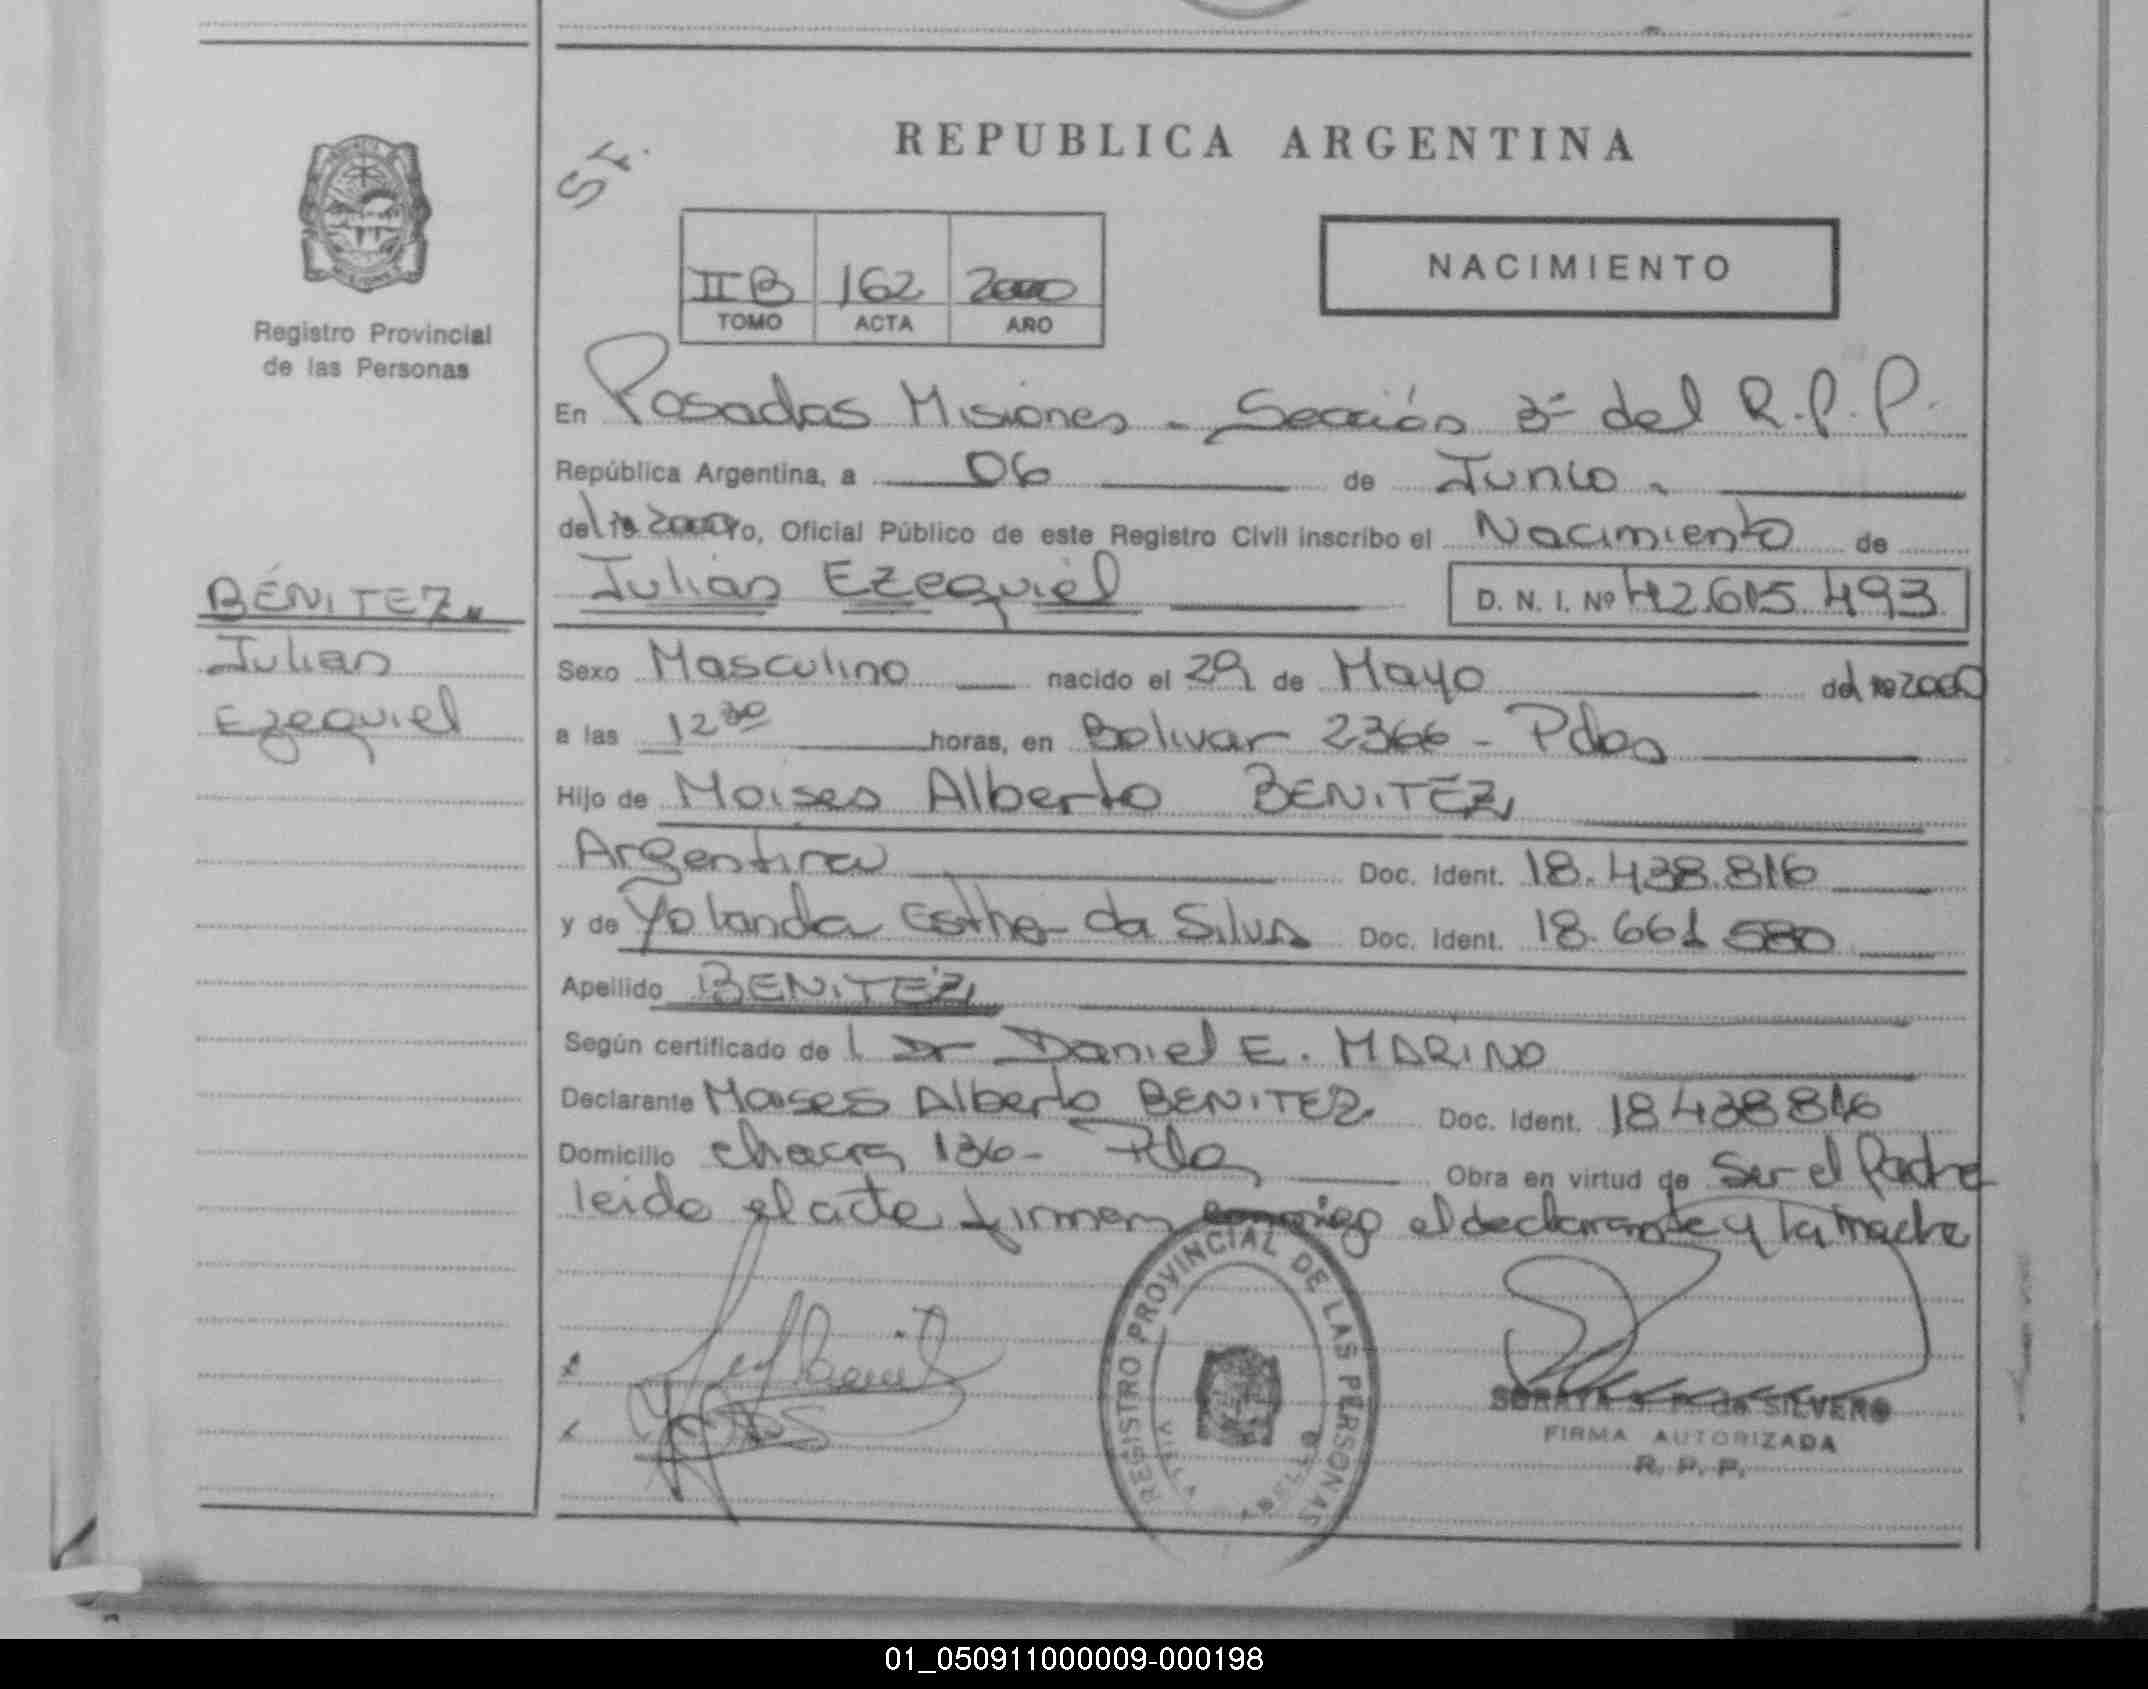 REPUBLICA ARGENTINA
IIB 162 2000
TOMO ACTA AÑO
NACIMIENTO
Registro Provincial
de las Personas
BENITEZ
Julian
Ezequiel
En Posadas Misiones - Sección 3ª del R.P.P.
República Argentina, a 06 de Junio
del 2000 yo, Oficial Público de este Registro Civil inscribo el Nacimiento de
Julian Ezequiel D. N. I. Nº 42.615.493
Sexo Masculino nacido el 29 de Mayo del 2000
a las 12 30 horas, en Bolivar 2366 - Pdas
Hijo de Moises Alberto BENITEZ
Argentina Doc. Ident. 18.438.816
y de Yolanda Esther da Silva Doc. Ident. 18.661 580
Apellido BENITEZ
Según certificado de l Dr Daniel E. MARINO
Declarante Moises Alberto BENITEZ Doc. Ident. 18 438 816
Domicilio chacra 136 - Pda Obra en virtud de Ser el Padre
leida el acta firman conmigo el declarante y la madre
REGISTRO PROVINCIAL DE LAS PERSONAS
VILLA CABELLO
SORAYA de SILVERO
FIRMA AUTORIZADA
R. P. P.
01_050911000009-000198